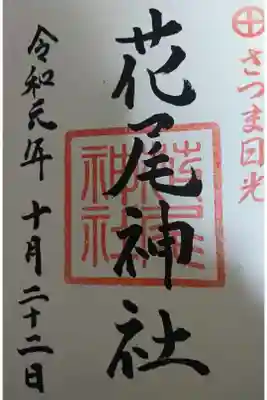 さつま日光
花尾神社
花尾神社
令和元年十月二十二日